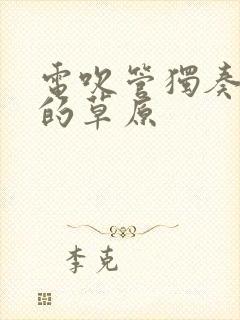 電吹管獨奏
的草原
李克